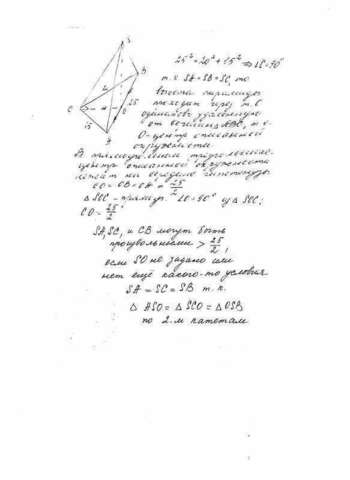 S
B
C
A
O
15
25
25² = 20² + 15² ⇒ ∠C = 90°
т.к SA = SB = SC, то
высота пирамиды
проходит через т. О
одинаково удалённую
от вершин ABC, т.е.
О-центр описанной
окружности.
В прямоугольном треугольнике
центр описанной окружности
лежит на середине гипотенузы
CO = OB = OA = 25/2
△ SOC – прямоуг. ∠O = 90° из △ SOC;
CO = 25/2
SA, SC, и СВ могут быть
произвольными > 25/2,
если SO не задано или
нет ещё какого-то условия
SA = SC = SB т.к.
△ ASO = △ SCO = △ OSB
по 2-м катетам